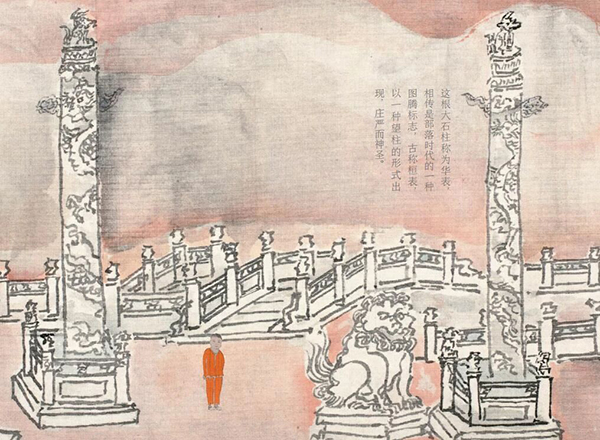 这根大石柱称为华表，
相传是部落时代的一种
图腾标志，古称桓表，
以一种望柱的形式出
现，庄严而神圣。